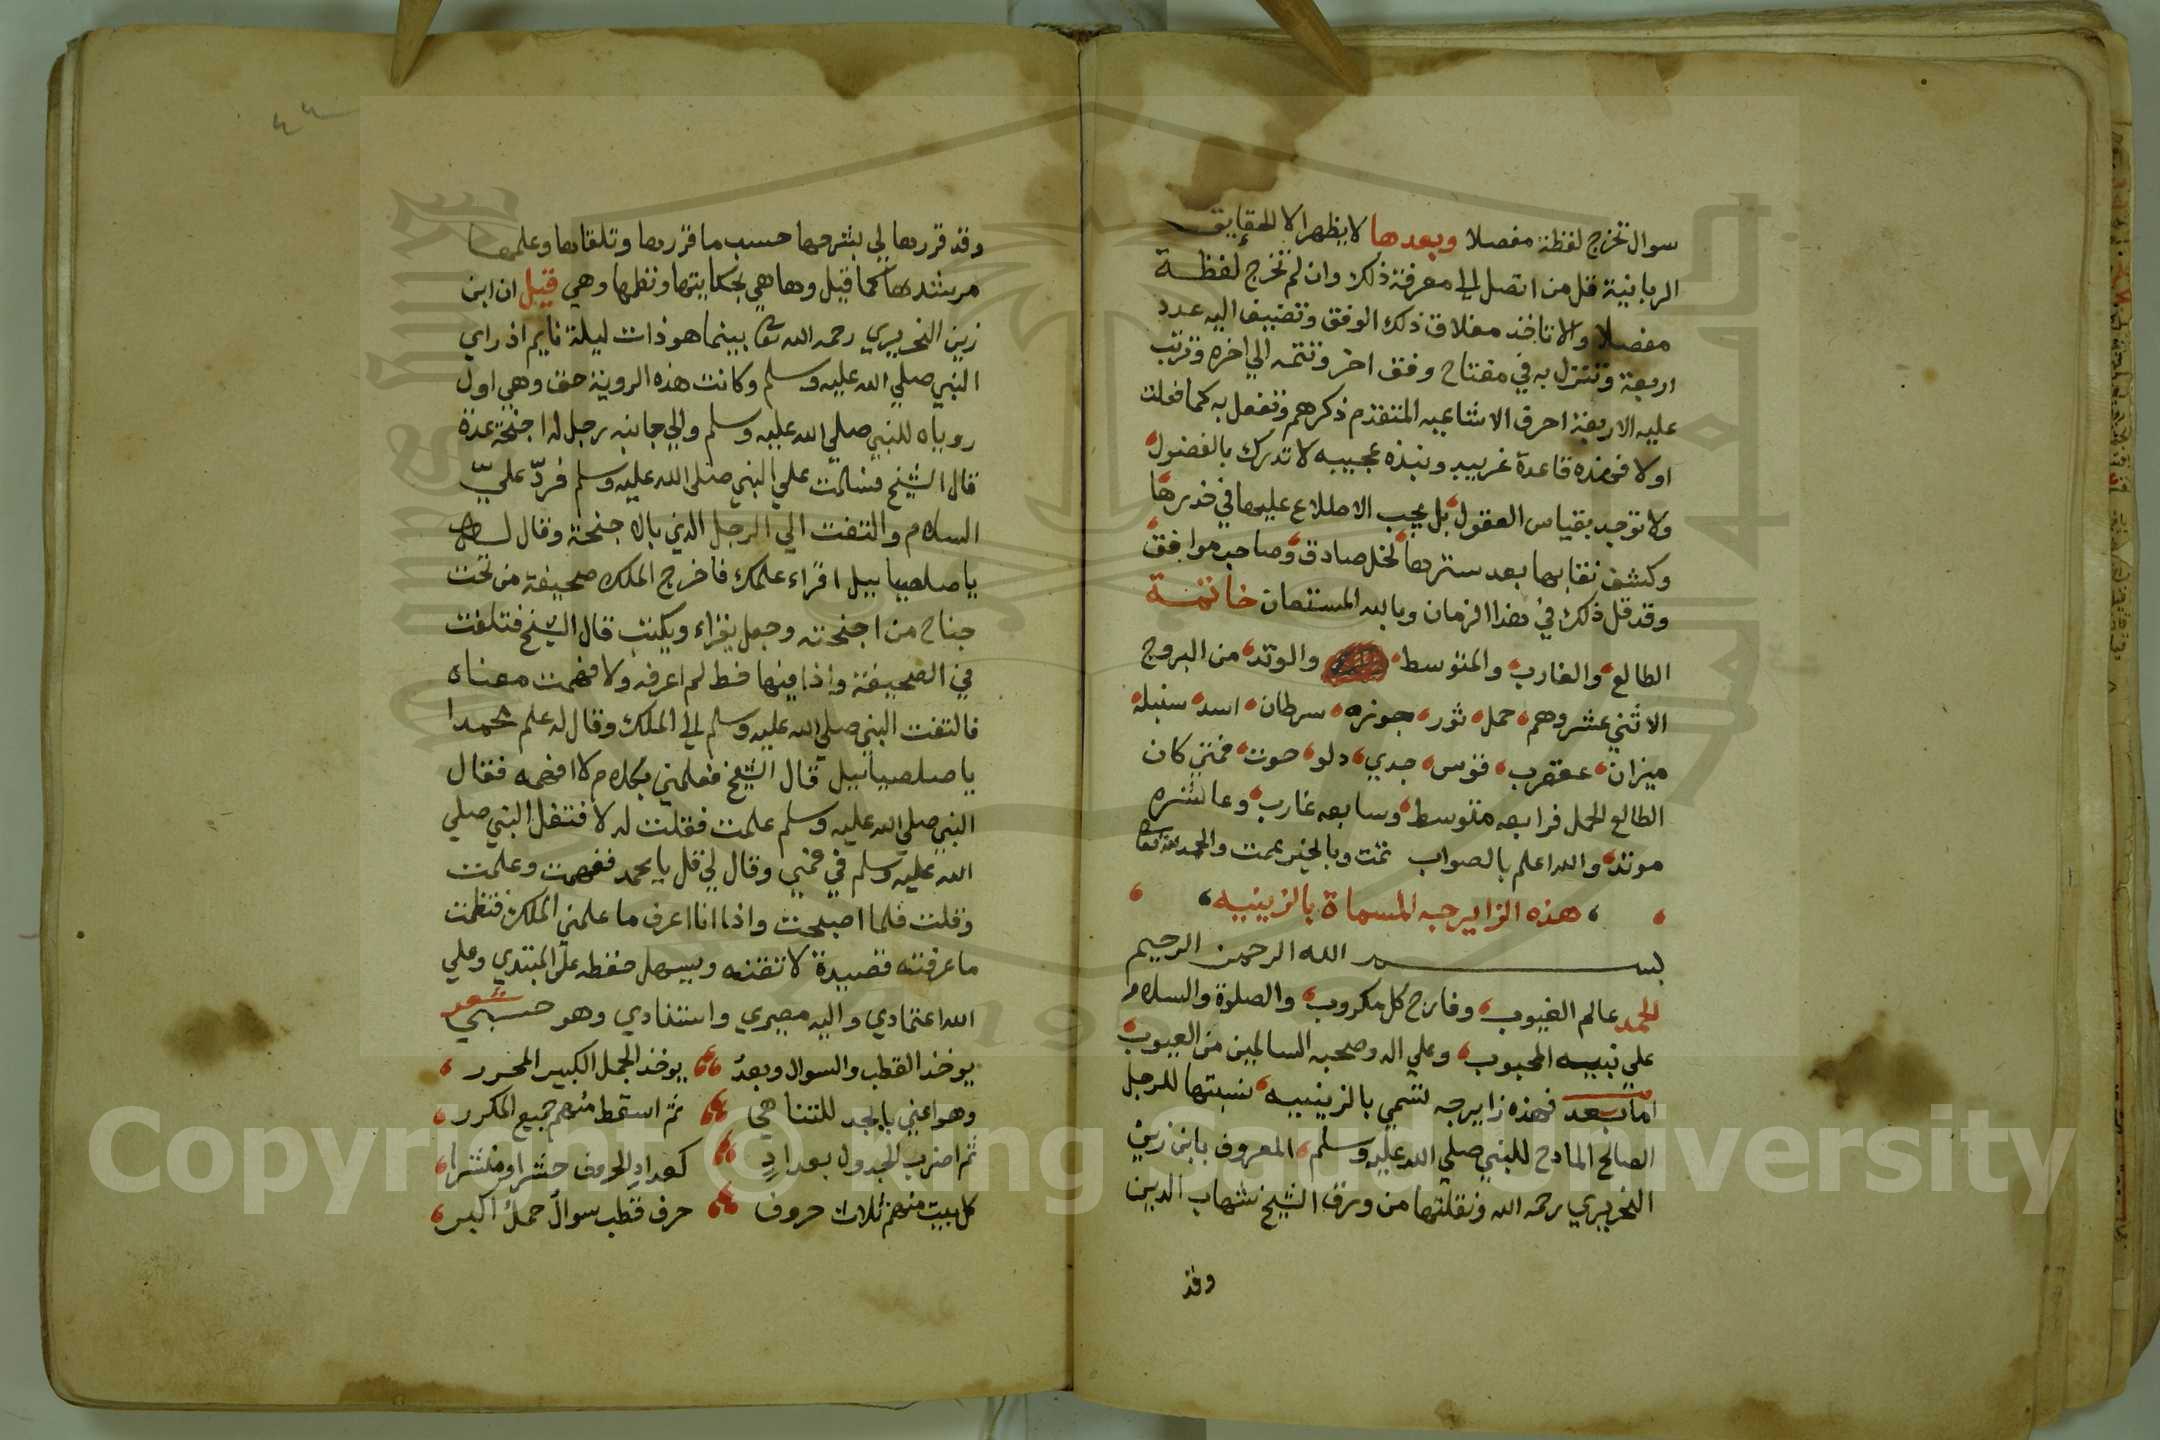 سوال تخرج لفظة مفصلا وبعدها لايظهر الا للحقايق
الربانية قل من اتصل الي معرفة ذلك وان لم تخرج لفظة
مفصلا والا تاخذ مغلاق ذلك الوفق وتضيف اليه عدد
اربعة وتنزل به في مفتاح وفق اخر وتتمه الي اخره وترتب
عليه الاربعة احرف الاشاعيه المتقدم ذكرهم وتفعل به كما فعلت
اولا فهذه قاعدة غريبه ونبذه عجيبه لا تدرك بالفضول
ولا توجد بقياس العقول بل يجب الاطلاع عليها في خدرها
وكشف نقابها بعد سترها لخل صادق وصاحب موافق
وقد قل ذلك في هذا الزمان وبالله المستعان خاتمة
الطالع والغارب والمتوسط والوتد من البروج
الاثني عشر وهم حمل ثور جوزه سرطان اسد سنبله
ميزان عقرب قوس جدي دلو حوت فمتي كان
الطالع الحمل فرابعه متوسط وسابعه غارب وعاشره
موتد والله اعلم بالصواب تمت وبالخير عمت والحمد لله تعا
هذه الزايرجه المسماة بالزينبيه
بسم الله الرحمن الرحيم
الحمد عالم الغيوب وفارج كل مكروب والصلوة والسلام
علي نبيه المحبوب وعلي اله وصحبه السالمين من العيوب
اما بعد فهذه زايرجه تسمي بالزينبيه نسبتها للرجل
الصالح المادح للنبي صلي الله عليه وسلم المعروف بابن زين
النحريري رحمه الله ونقلتها من ورق الشيخ شهاب الدين
وقد
وقد قررها لي بشرحها حسب ما قررها وتلقاها وعلمها
مرشدها كما قيل وها هي بحكايتها ونظمها وهي قيل ان ابن
زين النحريري رحمه الله تعا بينما هو ذات ليلة نايم اذ راي
النبي صلي الله عليه وسلم وكانت هذه الروية حق وهي اول
روياه للنبي صلي الله عليه وسلم والي جانبه رجل له اجنحة عدة
قال الشيخ فسلمت علي النبي صلي الله عليه وسلم فردّ عليّ
السلام والتفت الي الرجل الذي بالاجنحة وقال له
يا صلصيابيل اقراء علمك فاخرج الملك صحيفة من تحت
جناح من اجنحته وجعل يقراء ويكتب قال الشيخ فتلفت
في الصحيفة واذا فيها خط لم اعرفه ولا فهمت معناه
فالتفت النبي صلي الله عليه وسلم الي الملك وقال له علم محمدا
يا صلصيابيل قال الشيخ فعلمني بكلام لا افهمه فقال
النبي صلي الله عليه وسلم علمت فقلت له لا فتفل النبي صلي
الله عليه وسلم في فمي وقال لي قل يا محمد ففهمت وعلمت
وقلت فلما اصبحت واذا انا اعرف ما علمني الملك فنظمت
ما عرفته قصيدة لاتقنه ويسهل حفظه علي المبتدي وعلي
الله اعتمادي واليه مصيري واستنادي وهو حسبي شعر
يوخذ القطب والسوال وبعدُ يوخذ الجمل الكبير المحرر
وهو اعني بابجد للتناهي ثم اسقط منهم جميع المكرر
ثم اضرب الجدول بعدادٍ كعداد الحروف حشرا ومنشرا
كل بيت منهم ثلاث حروف حرف قطب سوال جمل اكبر
Copyright © King Saud University